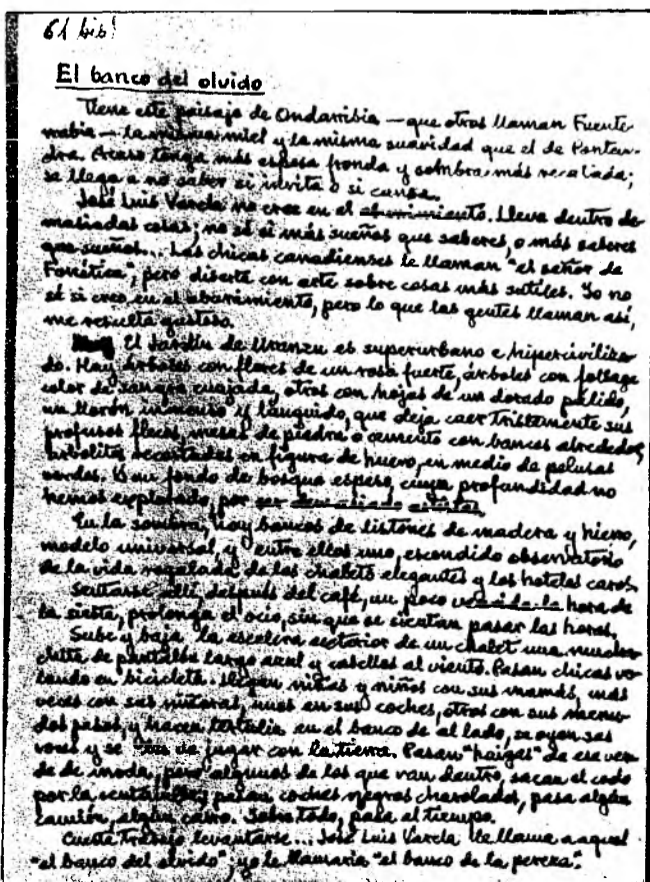 61 bis!
El banco del olvido
Tiene este paisaje de Ondarribia — que otros llaman Fuente-
rrabia — la misma miel y la misma suavidad que el de Ponteve-
dra. Acaso tenga más espesa fronda y sombra más recatada;
se llega a no saber si invita o si cansa.
José Luis Varela no cree en el aburrimiento. Lleva dentro de-
masiadas cosas; no sé si más sueños que saberes, o más saberes
que sueños... Las chicas canadienses le llaman "el señor de
Fonética", pero diserta con arte sobre cosas más sutiles. Yo no
sé si creo en el aburrimiento, pero lo que las gentes llaman así,
me resulta gustoso.
El Jardín de Uranzu es superurbano e hipercivilizo-
do. Hay árboles con flores de un rosa fuerte, árboles con follage
color de sangre cuajada, otros con hojas de un dorado pálido,
un llorón inmenso y lánguido, que deja caer tristemente sus
profusos flecos, mesas de piedra o cemento con bancos alrededor,
arbolitos recortados en figura de huevo, en medio de pelusas
verdes. Y un fondo de bosque espeso, cuya profundidad no
hemos explorado, por ser demasiado
En la sombra, hay bancos de listones de madera y hierro,
modelo universal, y entre ellos uno, escondido observatorio
de la vida regalada de los chalets elegantes y los hoteles caros.
Sentarse allí, después del café, un poco vencida la hora de
la siesta, prolonga el ocio, sin que se sientan pasar las horas.
Sube y baja la escalera exterior de un chalet una mucha-
chita de pantalón largo azul y cabellos al viento. Pasan chicas vo-
lando en bicicleta. Llegan niñas y niños con sus mamás, más
veces con sus niñeras, unos en sus coches, otros con sus menu-
dos pasos, y hacen tertulia en el banco de al lado, se oyen sus
voces y se les ve jugar con la tierra. Pasan "haigas" de ese ver-
de de moda, pero algunos de los que van dentro, sacan el codo
por la ventanilla; pasan coches negros charolados, pasa algún
camión, algún carro. Sobre todo, pasa el tiempo.
Cuesta trabajo levantarse... José Luis Varela le llama a aquel
"el banco del olvido", yo le llamaría "el banco de la pereza".